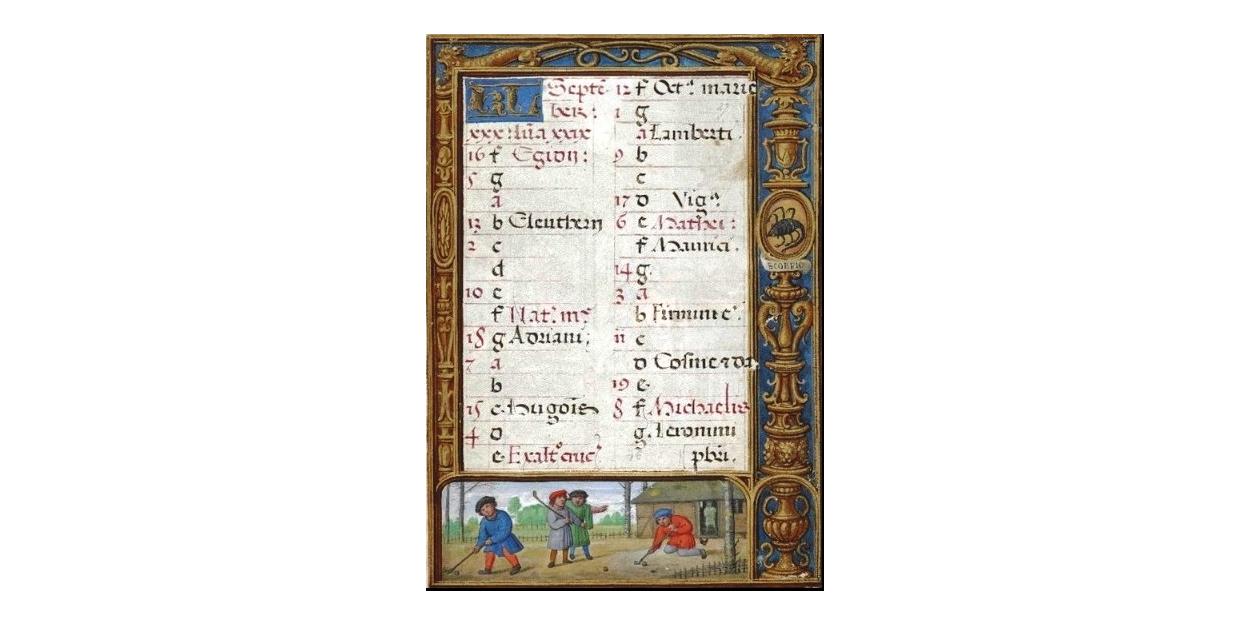 KL Septē-
ber:
xxx: lūa xxix
16 f Egidij:
5 g
a
13 b Eleutherij
2 c
d
10 e
f Nat: m
18 g Adriani:
7 a
b
15 c Hugōis
4 d
e Exalt° cruc
12 f Oct. marie
1 g
a Lamberti.
9 b
c
17 d Vig
6 e Mathei:
f Maurici.
14 g.
3 a
b Firmini
11 c
d Cosme ⁊ da
19 e
8 f Michaelis
g. Ieronimi
pbri.
SCORPIO